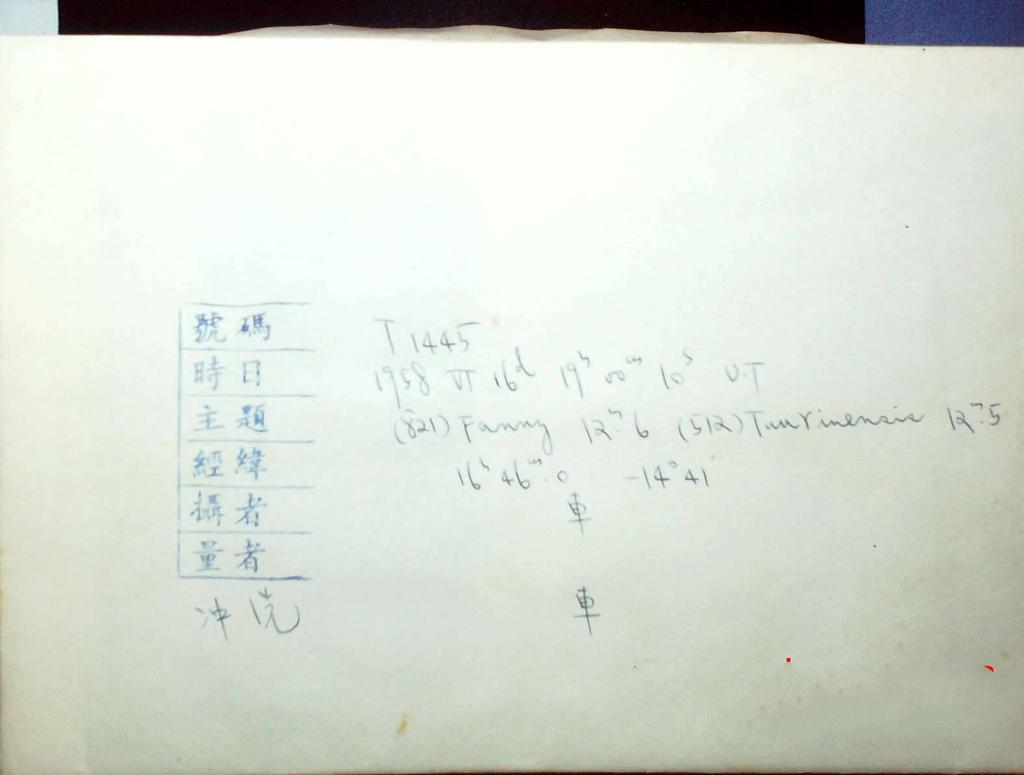 號碼 T 1445
時日 1958 VI 16d 19h 00m 10s U.T
主題 (821) Fanny 12m.6 (512) Taurinensis 12m.5
經緯 16h 46m.0 -14°41'
攝者 車
量者
冲洗 車